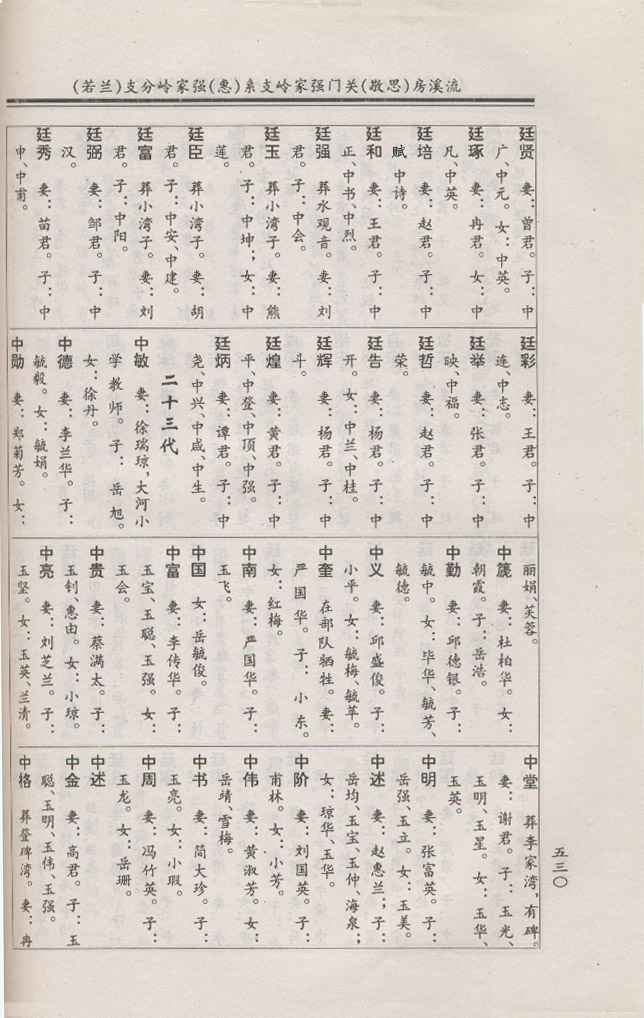 流溪房(思敬)关门强家岭支系(惠)强家岭分支(兰若)
廷贤 妻：曾君。子：中
广、中元。女：中英。
廷琢 妻：冉君。女：中
凡、中英。
廷培 妻：赵君。子：中
赋、中诗。
廷和 妻：王君。子：中
正、中书、中烈。
廷强 葬水观音。妻：刘
君。子：中会。
廷玉 葬小湾子。妻：熊
君。子：中坤；女：中
莲。
廷臣 葬小湾子。妻：胡
君。子：中安、中建。
廷富 葬小湾子。妻：刘
君。子：中阳。
廷弼 妻：邹君。子：中
汉。
廷秀 妻：苗君。子：中
申、中甫。
廷彩 妻：王君。子：中
连、中志。
廷举 妻：张君。子：中
映、中福。
廷哲 妻：赵君。子：中
荣。
廷告 妻：杨君。子：中
开。女：中兰、中桂。
廷辉 妻：杨君。子：中
斗。
廷煌 妻：黄君。子：中
平、中登、中顶、中强。
廷炳 妻：谭君。子：中
尧、中兴、中咸、中生。
二十三代
中敏 妻：徐瑞琼，大河小
学教师。子：岳旭。
女：徐丹。
中德 妻：李兰华。子：
毓毅。女：毓娟。
中勋 妻：郑菊芳。女：
丽娟、芙蓉。
中篪 妻：杜柏华。女：
朝霞。子：岳浩。
中勤 妻：邱德银。子：
毓中。女：毕华、毓芳、
毓德。
中义 妻：邱盛俊。子：
小平。女：毓梅、毓苹。
中奎 在部队牺牲。妻：
严国华。子：小东。
女：红梅。
中南 妻：严国华。子：
玉飞。
中国 女：岳毓俊。
中富 妻：李传华。子：
玉宝、玉聪、玉强。女：
玉会。
中贵 妻：蔡满太。子：
玉钊、惠由。女：小琼。
中亮 妻：刘芝兰。子：
玉坚。女：玉英、兰清。
中堂 葬李家湾，有碑。
妻：谢君。子：玉光、
玉明、玉星。女：玉华、
玉英。
中明 妻：张富英。子：
岳强、玉立。女：玉美。
中述 妻：赵惠兰；子：
岳均、玉宝、玉仲、海泉；
女：琼华、玉华。
中阶 妻：刘国英。子：
甫林。女：小芳。
中伟 妻：黄淑芳。女：
岳靖、雪梅。
中书 妻：简大珍。子：
玉亮。女：小瑕。
中周 妻：冯竹英。子：
玉龙。女：岳珊。
中述
中金 妻：高君。子：玉
聪、玉明、玉伟、玉强。
中格 葬登碑湾。妻：冉
五三〇